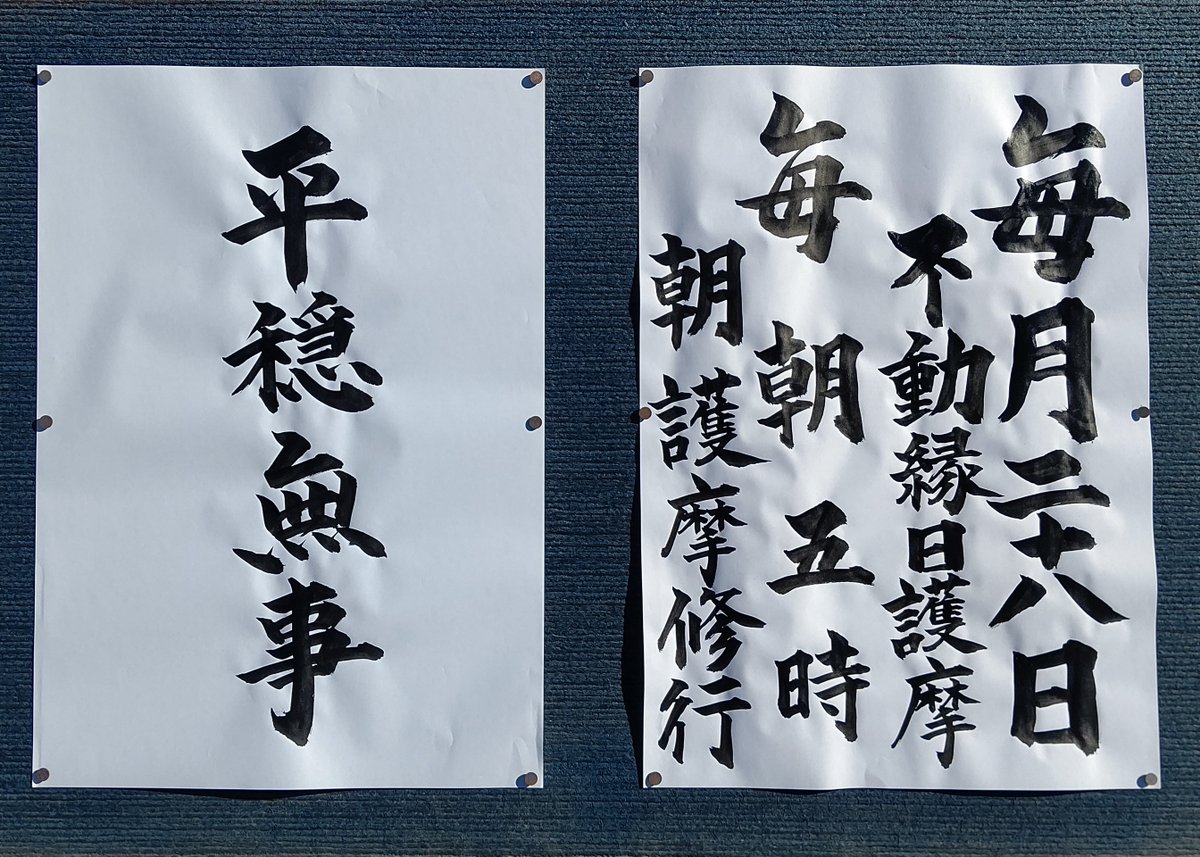 毎月二十八日
不動縁日護摩
毎朝五時
朝護摩修行
平穏無事